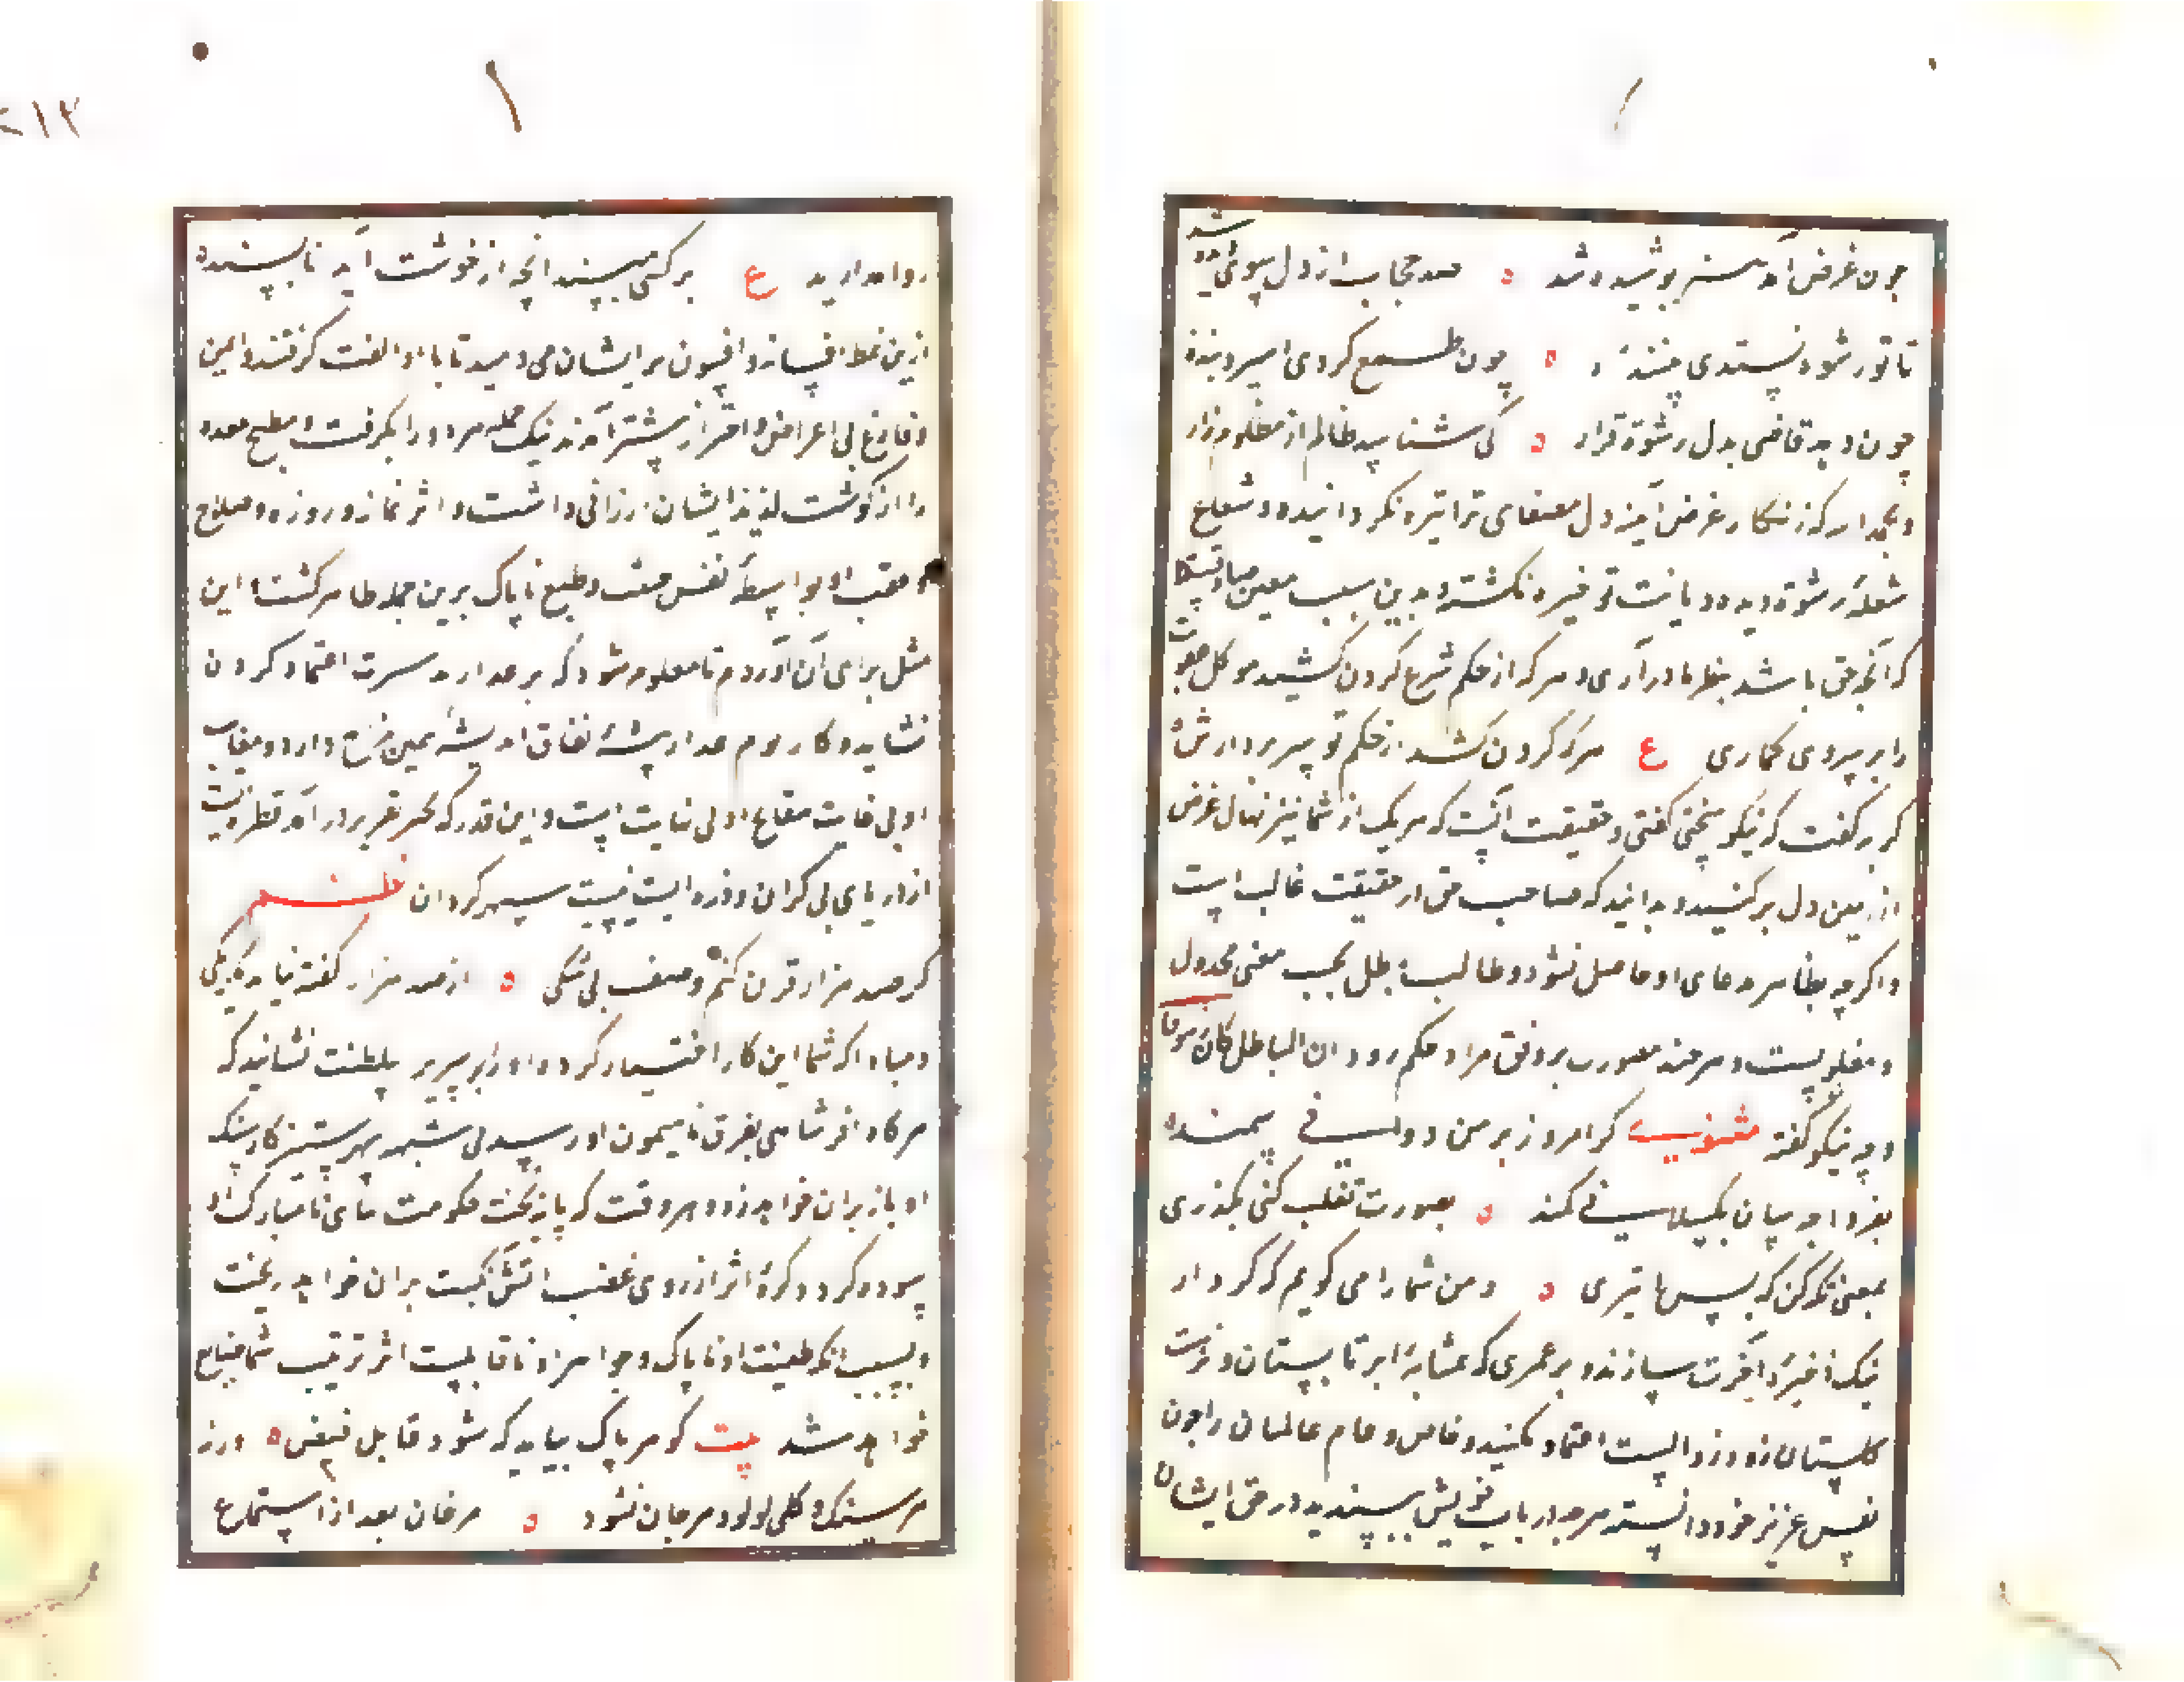 چون غرض آمد هنر پوشیده شد ه صد حجاب از دل بسوی دیده شد
تا تو رشوه نستدی بیننده ه چون طمع کردی اسیر و بنده
چون دهد قاضی بدل رشوة قرار ه کی شناسد ظالم از مظلوم زار
و بحمد الله که زنگار غرض آینهٔ دل مصفای ترا تیره نکردانیده و شعاع
شعلهٔ رشوة دیدهٔ دیانت تو خیره نکشته و بدین سبب
که آنچه حق باشد بنظر ما درآری و هر که از حکم شرع کردن کشید موکل عقوبت
را بر پی وی کماری ع هر که کردن کشد از حکم تو سر بردارش
کربه کفت که نیکو سخنی کفتی و حقیقت آنست که هر یک از شما نیز نهال غرض
از زمین دل برکنید و بدانید که صاحب حق در حقیقت غالب است
و اکرچه بظاهر مدعای او حاصل نشود و طالب باطل بحسب معنی مخذول
و مغلوبست و هرچند بصورت بر وفق مراد حکم رود ان الباطل کان زهوقا
و چه نیکو کفته مثنوی کر امروز بر من دولسی في پسنده
بفردا چه سان بکسلانی کمند ه بصورت تغلب کنی بکذری
بمعنی نکه کن که بس ها بتری ه و من شما را می کویم که کردار
نیک ذخیرهٔ آخرت سازند و بر عمری که بمثابهٔ ابر تابستان و نزهت
کلستان زود زوالست اعتماد مکنید و خاص و عام عالمیان را چون
نفس عزیز خود دانسته هرچه در باب خویش نپسندید در حق ایشان
روا مدارید ع بر کسی مپسند آنچه از خوشت آید ناپسنده
ازین نمط افسانه و افسون بر ایشان می دمید تا با او الفت کرفتند و ایمن
و فارغ بی اعراض و احتراز پیشتر آمدند بیک حمله هر دو را بکرفت و مطبخ معده
را از کوشت لذیذ ایشان ارزانی داشت و اثر نماز و روزه و صلاح
و تعب او بواسطهٔ نفس خبث و طبع ناپاک برین جمله ظاهر کشت این
مثل برای آن آوردم تا معلوم شود که بر غدار بد سیرت اعتماد کردن
نشاید و کار بوم غدار پیشهٔ نفاق اندیشه همین مزاج دارد و معایب
او بی غایت مقابح او بی نهایت است و این قدر که بحیز تقریر در آمد قطره ایست
از دریای بی کران و ذره ایست نسبت سپهر کردان نظم
کر صد هزار قرن کنم وصف بی شکی ه از صد هزار کفته نیاید یکی
و مبادا که شما این کار اختیار کرده او را بر سریر سلطنت نشانید که
هرکاه افسر شاهی بفرق نامیمون او رسد بی شبهه سپهر ستیزکار سنک
او باز بران خواهد زد و هر وقت که پایهٔ تخت حکومت بپای نامبارک او
سوده کردد کرهٔ اثر از روی غضب آتش نکبت بران خواهد ریخت
و بسبب آنکه طینت او ناپاک و جوهر او ناقابلست اثر تربیت شما ضایع
خواهد شد بیت کوهر پاک بباید که شود قابل فیض ه ورنه
هر سنک و کلی لولو و مرجان نشود ه مرغان بعد از استماع